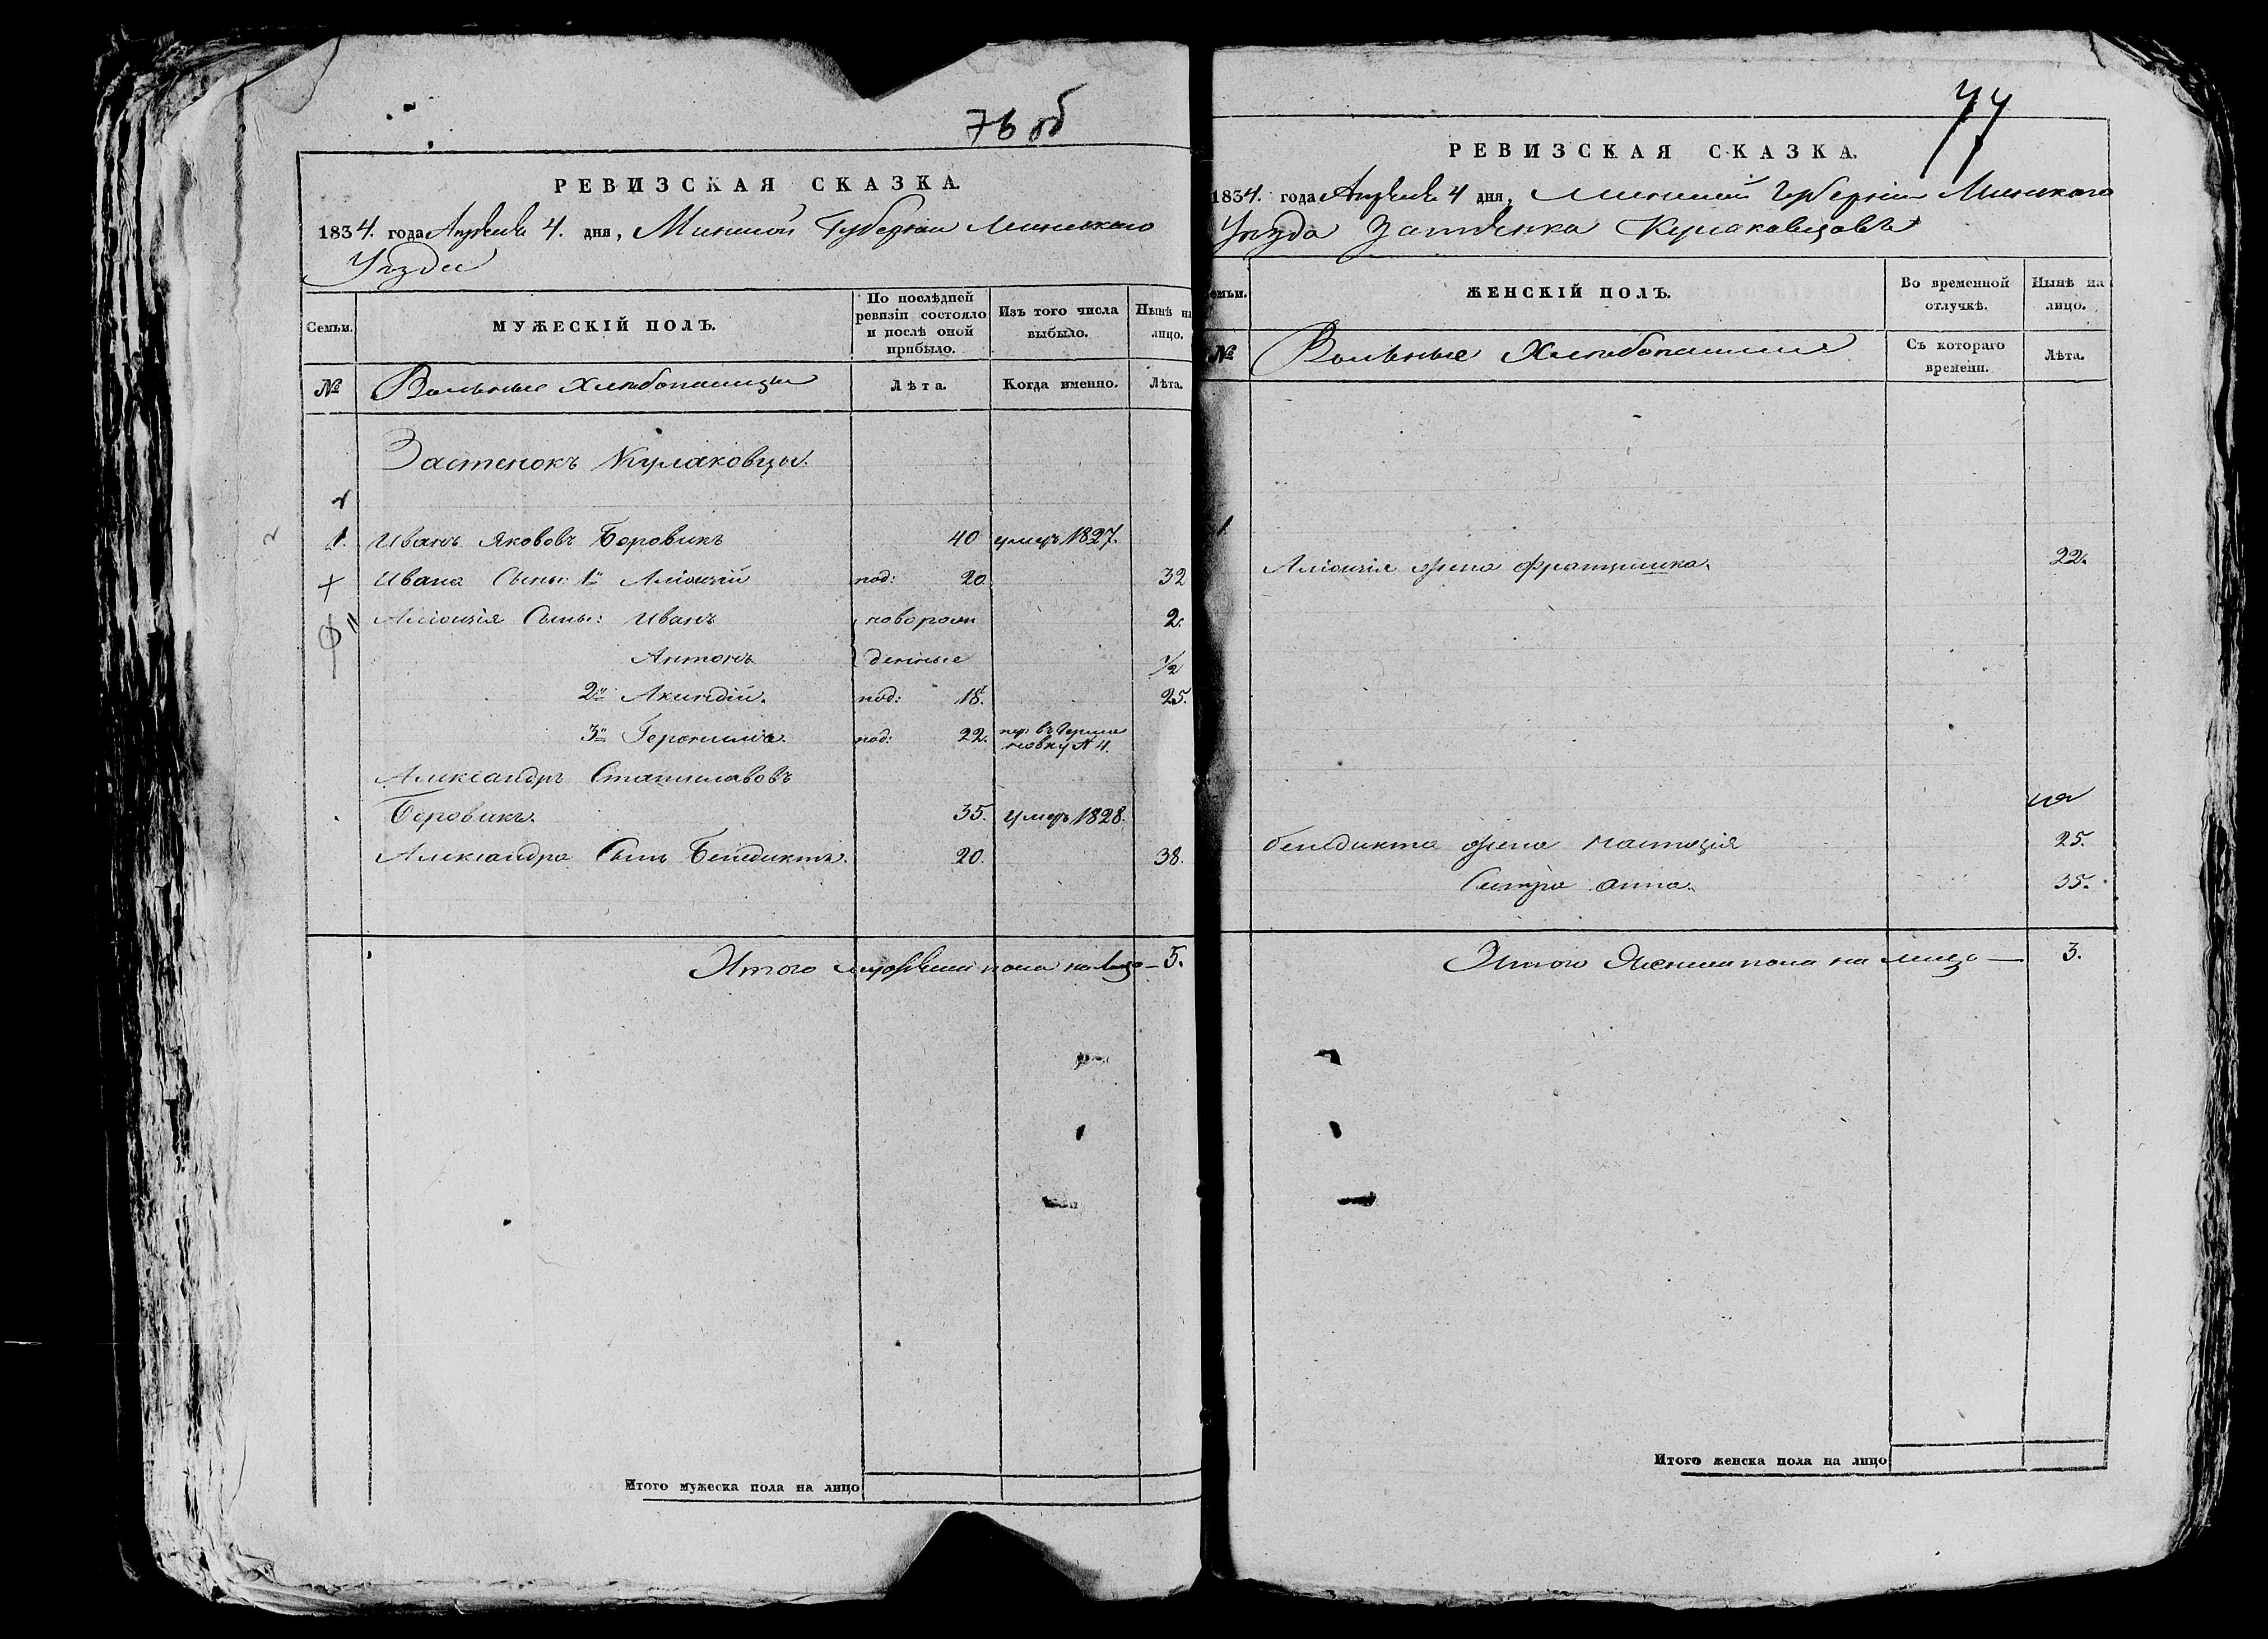 76 об
РЕВИЗСКАЯ СКАЗКА.
1834. года Апреля 4. дня, Минской Губернии Минскаго
Уезда
Семьи.
МУЖЕСКІЙ ПОЛЪ.
По послѣдней ревизіи состояло и послѣ оной прибыло.
Изъ того числа выбыло.
Нынѣ на лицо.
№
Вольные Хлебопашцы
Лѣта.
Когда именно.
Лѣта.
Застенокъ Кулаковцы.
1. Иванъ Яковов Боровикъ 40 умеръ 1827.
Ивана Сыны: 1й Алiоизiй под: 20 32
Алiоизiя Сыны: Иванъ новорож 2.
Антонъ денные 1/2
2й под: 18. 25.
3й Геронимъ под: 22. пер: въ
новку № 4.
Александръ Станиславовъ
Боровикъ. 35. умеръ 1828.
Александра Сынъ Бенедиктъ. 20. 38.
Итого мужеска пола на лицо — 5.
Итого мужеска пола на лицо
77
РЕВИЗСКАЯ СКАЗКА.
1834. года Апреля 4 дня, Минской Губернии Минскаго
Уезда Застенка Кулаковцовъ
Семьи.
ЖЕНСКІЙ ПОЛЪ.
Во временной отлучкѣ.
Нынѣ на лицо.
№
Вольные Хлебопашцы
Съ котораго времени.
Лѣта.
1
Алiоизiя жена Францишка. 22.
Бенедикта жена 25.
Сестра Анна. 35.
Итого Женска пола на лицо — 3.
Итого женска пола на лицо